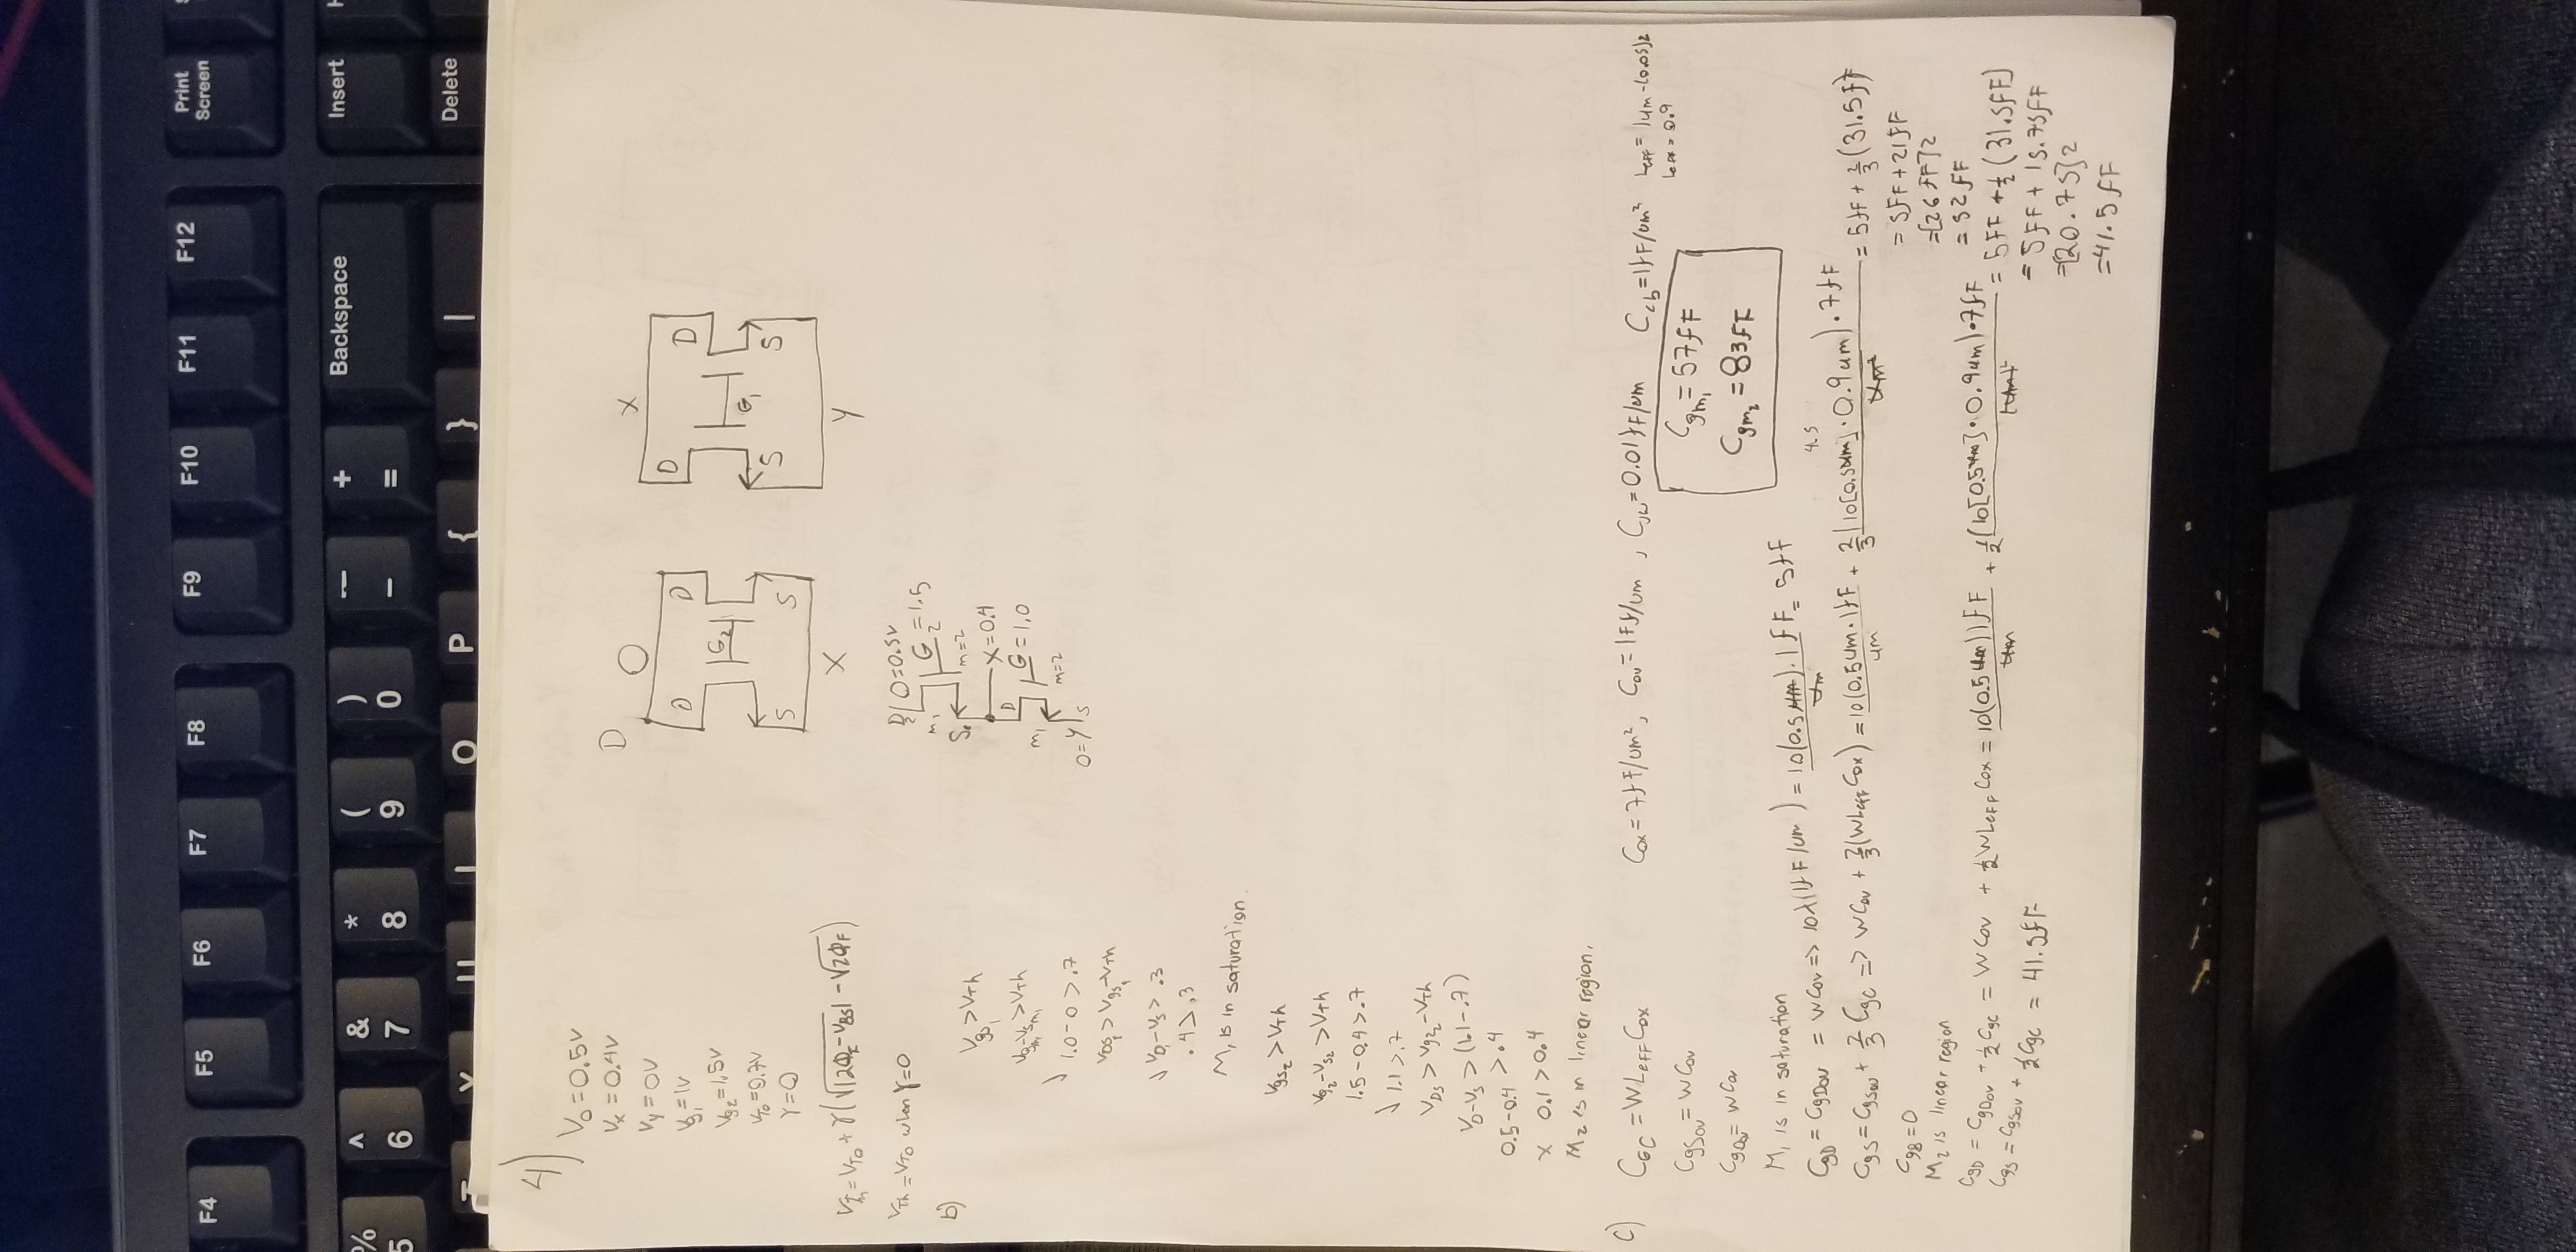 F4 F5 F6 F7 F8 F9 F10 F11 F12 Print Screen
% 5 ^ 6 & 7 * 8 ( 9 ) 0 — - + = Backspace Insert
O P { } | Delete
4)
V₀=0.5v
Vx=0.4v
Vy=0v
Vg₁=1v
Vg₂=1.5v
V_T0=0.7v
γ=0
V_Th=V_T0+γ(√|2Φ_F-V_BS|-√2Φ_F)
V_Th=V_T0 when γ=0
D O
D D
G₂
S S
X
X
D D
G₁
S S
Y
D₂ O=0.5v
m₁ G₂=1.5
S₂ m=2
X=0.4
D
m₁ G=1.0
m=2
0=Y S
b)
Vgs₁>VTh
Vgm₁-Vsm₁>VTh
√ 1.0-0>.7
VDS₁>Vgs₁-VTh
√ VD₁-Vs>.3
.4>.3
M₁ is in saturation.
Vgs₂>VTh
Vg₂-Vs₂>VTh
1.5-0.4>.7
√ 1.1>.7
VDS>Vgs₂-VTh
VD-VS>(1.1-.7)
0.5-0.4>.4
x 0.1>0.4
M₂ is in linear region.
c)
C_GC=WL_EFF Cox Cox=7fF/um², Cov=1Ff/um, Cjw=0.01fF/um Ccb=1fF/um² L_EFF=1um-(0.05)2
L_EFF=0.9
CgSov=WCov
CgDov=WCov
Cgm₁=57fF
Cgm₂=83fF
M₁ is in saturation
CgD=CgDov=WCov=>10λ(1fF/um)=10(0.5um).1fF/um=5fF
4.5
CgS=CgSov+2/3CgC=>WCov+2/3(WLeffCox)=10(0.5um.1)fF/um+2/3(10[0.5um].0.9um).7fF/um²=5fF+2/3(31.5fF)
=5fF+21fF
=[26fF]2
=52fF
CgB=0
M₂ is linear region
CgD=CgDov+1/2CgC=WCov+1/2WLeffCox=10(0.5um)1fF/um+1/2(10[0.5um].0.9um).7fF/(um)²=5fF+1/2(31.5fF)
=5fF+15.75fF
=[20.75]2
=41.5fF
CgS=CgSov+1/2CgC=41.5fF